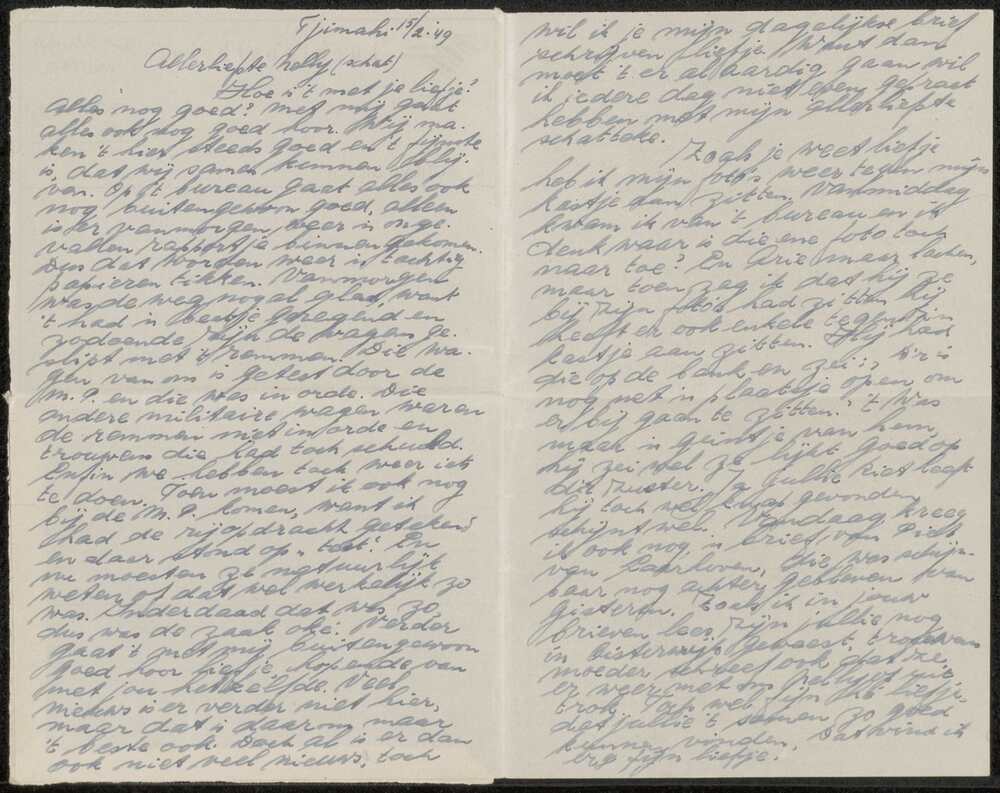 Tjimahi. 15/2.49
Allerliefste Nelly (schat)
Hoe is 't met je liefje?
Alles nog goed? Met mij gaat
alles ook nog goed hoor. Wij ma-
ken 't hier steeds goed en 't fijnste
is, dat wij samen kunnen blij-
ven. Op 't bureau gaat alles ook
nog buitengewoon goed, alleen
is er vanmorgen weer 'n onge-
vallen rapportje binnen gekomen.
Dus dat worden weer 'n tachtig
papieren tikken. Vanmorgen
was de weg nogal glad, want
't had 'n beetje geregend en
zodoende zijn de wagens ge-
slipt met 't remmen. Die wa-
gen van ons is getest door de
M.P. en die was in orde. Die
andere militaire wagen waren
de remmen niet in orde en
trouwens die had toch schuld.
Enfin we hebben toch weer iets
te doen. Toen moest ik ook nog
bij de M.P. komen, want ik
had de rijopdracht getekend
en daar stond op "test". En
nu moesten ze natuurlijk
weten of dat wel werkelijk zo
was. Inderdaad dat was zo
dus was de zaak oké. Verder
gaat 't met mij buitengewoon
goed hoor liefje, hopende van
met jou hetzelfde. Veel
nieuws is er verder niet hier,
maar dat is daarom maar
't beste ook. Doch al is er dan
ook niet veel nieuws, toch
wil ik je mijn dagelijkse brief
schrijven liefje. Want dan
moet 't er al aardig gaan wil
ik iedere dag niet even gepraat
hebben met mijn allerliefste
schatteke.
Zoals je weet liefje
heb ik mijn foto's weer tegen mijn
kastje aan zitten. Vanmiddag
kwam ik van 't bureau en ik
denk waar is die ene foto toch
naar toe? En Arie maar lachen,
maar toen zag ik dat hij ze
bij zijn foto's had zitten. Hij
heeft er ook enkele tegen z'n
kastje aan zitten. Hij had
die op de bank en zei: Er is
nog net 'n plaatsje open om
er bij gaan te zitten. 't Was
maar 'n geintje van hem,
hij zei wel ze lijkt goed op
d'r zuster. Ja jullie Riet heeft
hij toch wel knap gevonden
schijnt wel. Vandaag kreeg
ik ook nog 'n brief van Piet
van Laarhoven, die was schijn-
baar nog achter gebleven van
gisteren. Zoals ik in jouw
brieven lees zijn jullie nog
in Oisterwijk geweest, trouwens
moeder schreef ook dat ze
er weer met om
trok. Toch wel fijn hè liefje
dat jullie 't samen zo goed
kunnen vinden. Dat vind ik
erg fijn liefje.